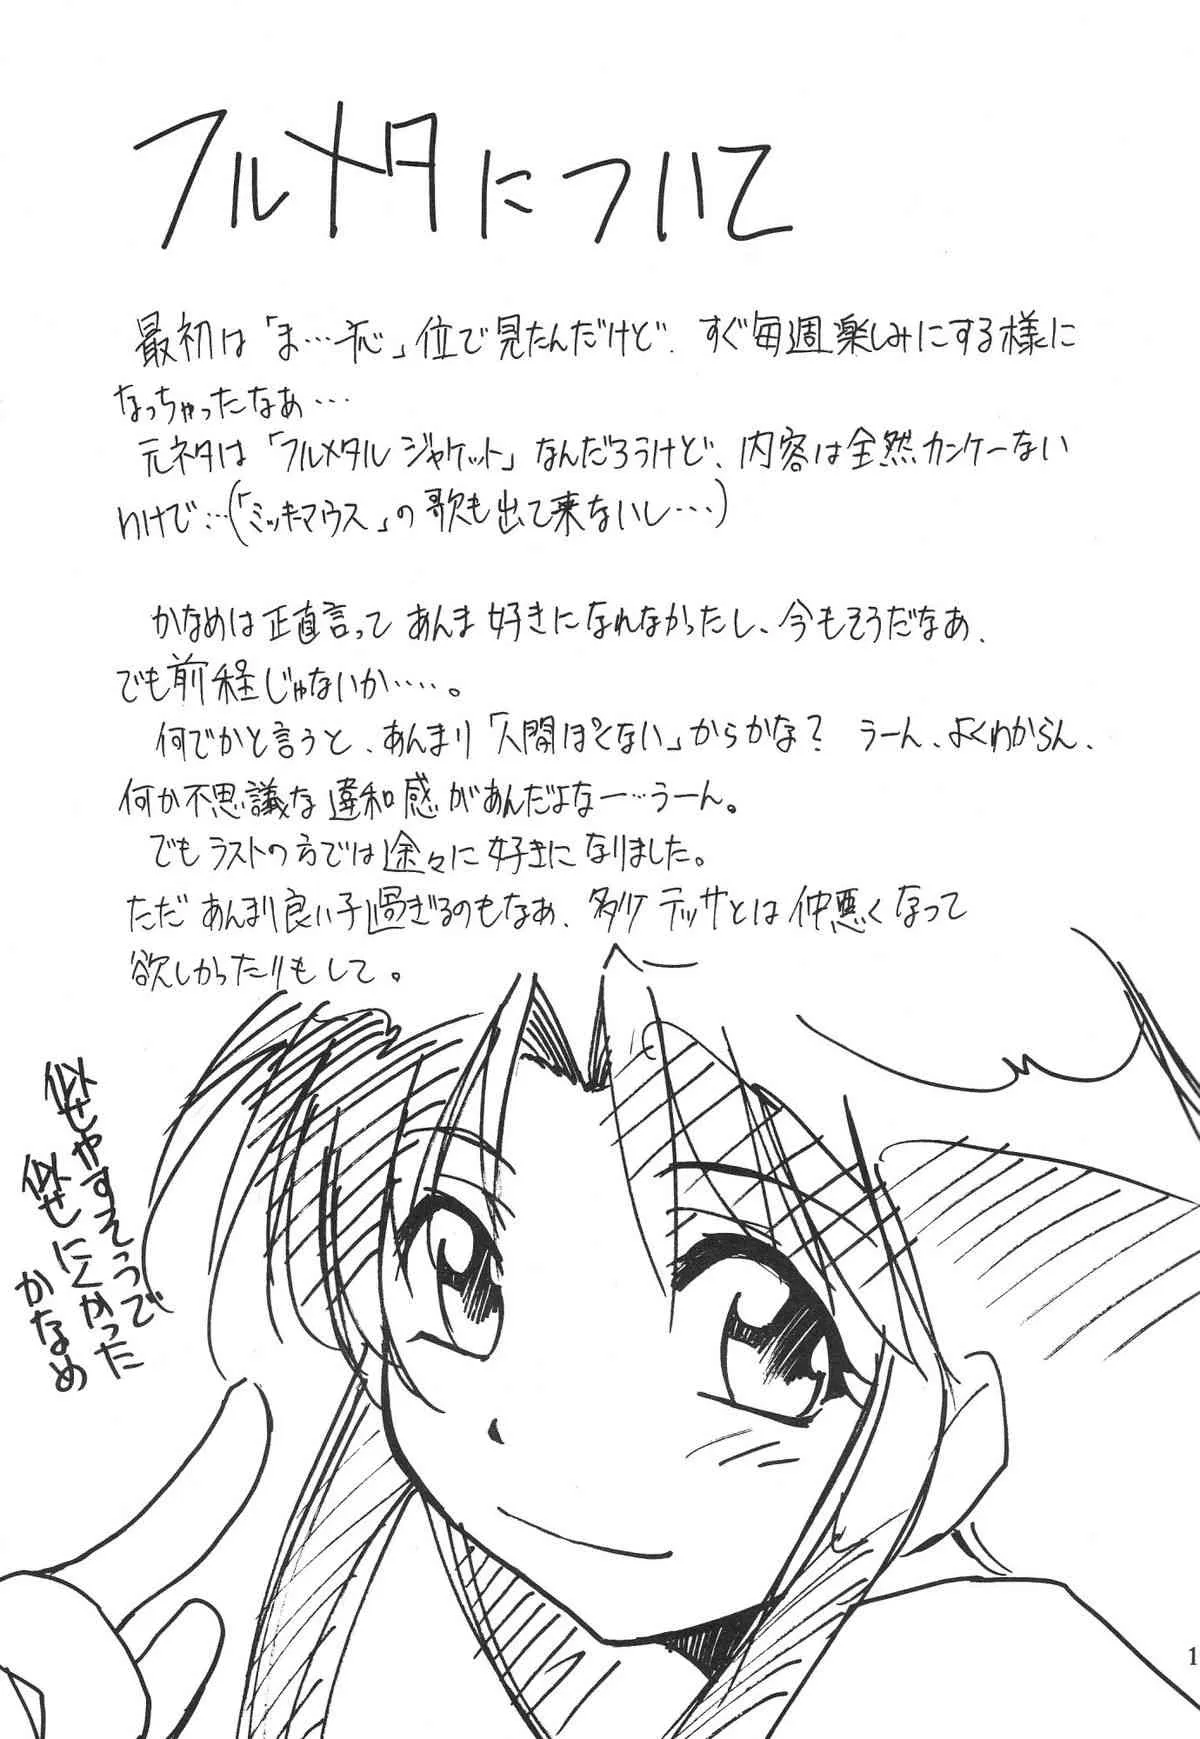 フルメタについて
最初は「ま…一応」位で見たんだけど、すぐ毎週楽しみにする様に
なっちゃったなぁ…
元ネタは「フルメタル ジャケット」なんだろうけど、内容は全然カンケーない
わけで…(「ミッキーマウス」の歌も出て来ないし…)
かなめは正直言って あんま 好きになれなかったし、今もそうだなぁ、
でも前程じゃないか……。
何でかと言うと、あんまり「人間ぽくない」からかな? うーん、よくわからん、
何か不思議な違和感があんだよなー…うーん。
でも ラストの方では 途々に 好きに なりました。
ただ あんまり良い子過ぎるのもなぁ、多少 テッサとは 仲悪くなって
欲しかったりもして。
似せやすそうで
似せにくかった
かなめ
1